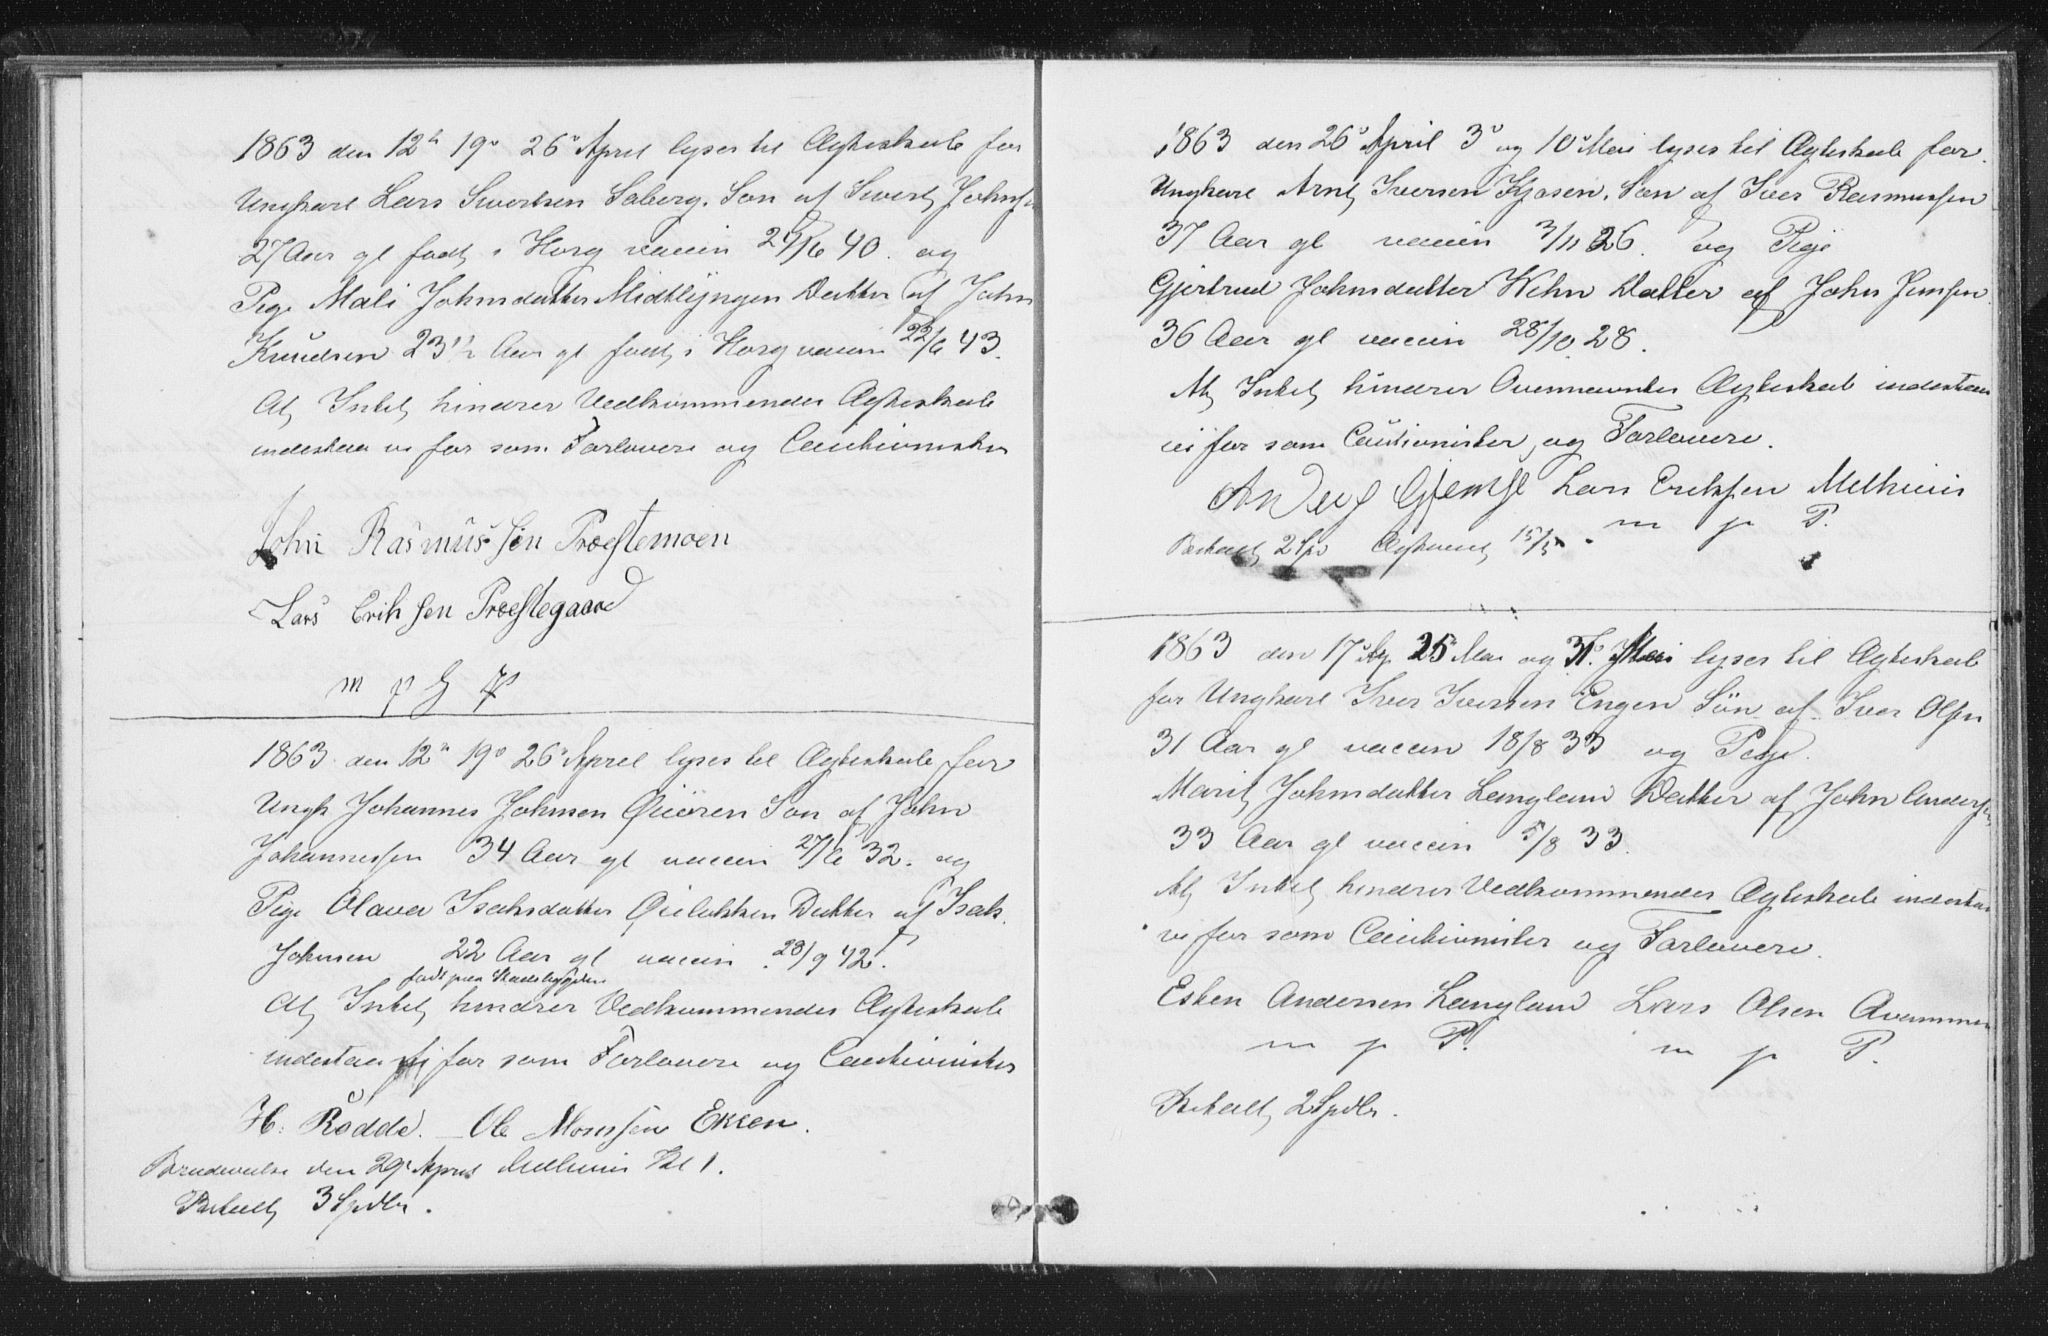 1863 den 12te 19de 26de April lyses til Ægteskab for
Ungkarl Lars Sivertsen Soberg. Søn af Sivert Johnsen
27 Aar gl født i Horg vaccin 24/6 40. og
Pige Mali Johnsdatter Midtlyngen Datter af John
Knudsen 23 1/2 Aar gl født i Horg vaccin 22/6 43.
At Intet hindrer Vedkommendes Ægteskab
indestaa vi for som Forlovere og Cautionister
John Rasmussen Præstemoen
Lars Eriksen Præstegaard
m p P
1863 den 12te 19de 26de April lyses til Ægteskab for
Ungk Johannes Johnsen Øiøren Søn af John
Johannessen 34 Aar gl vaccin 27/6 32. og
Pige Olava Isaksdatter Øielykken Datter af Isak
Johnsen 22 Aar gl vaccin 28/9 42.
født paa Stadsbygden
At Intet hindrer Vedkommendes Ægteskab
indestaa vi for som Forlovere og Cautionister
H. Rødde. Ole Monssen Eksen.
Brudevielse den 29de April Kl 1.
Betalt 3 Spdlr.
1863 den 26de April 3de og 10de Mai lyses til Ægteskab for
Ungkarl Arnt Iversen Kjosen. Søn af Iver Rasmussen
37 Aar gl vaccin 3/11 26. og Pige
Gjertrud Johnsdatter Hehn Datter af John Jensen
36 Aar gl vaccin 28/10 28.
At Intet hindrer Ovennævntes Ægteskab indestaa
vi for som Cautionister og Forlovere.
Anders Gjemse Lars Eriksen Melhuus
m p P.
Betalt 2 Spd Ægteviet 15/5.
1863 den 17de 25de Mai og 31te Mai lyses til Ægteskab
for Ungkarl Iver Iversen Engen Søn af Iver Olsen
31 Aar gl vaccin 18/8 33 og Pige
Marit Johnsdatter Langland Datter af John Andersen
33 Aar gl vaccin 5/8 33.
At Intet hindrer Vedkommendes Ægteskab indestaa
vi for som Cautionister og Forlovere.
Esten Andersen Langland Lars Olsen
m p P. m p P.
Betalt 2 Spdlr.